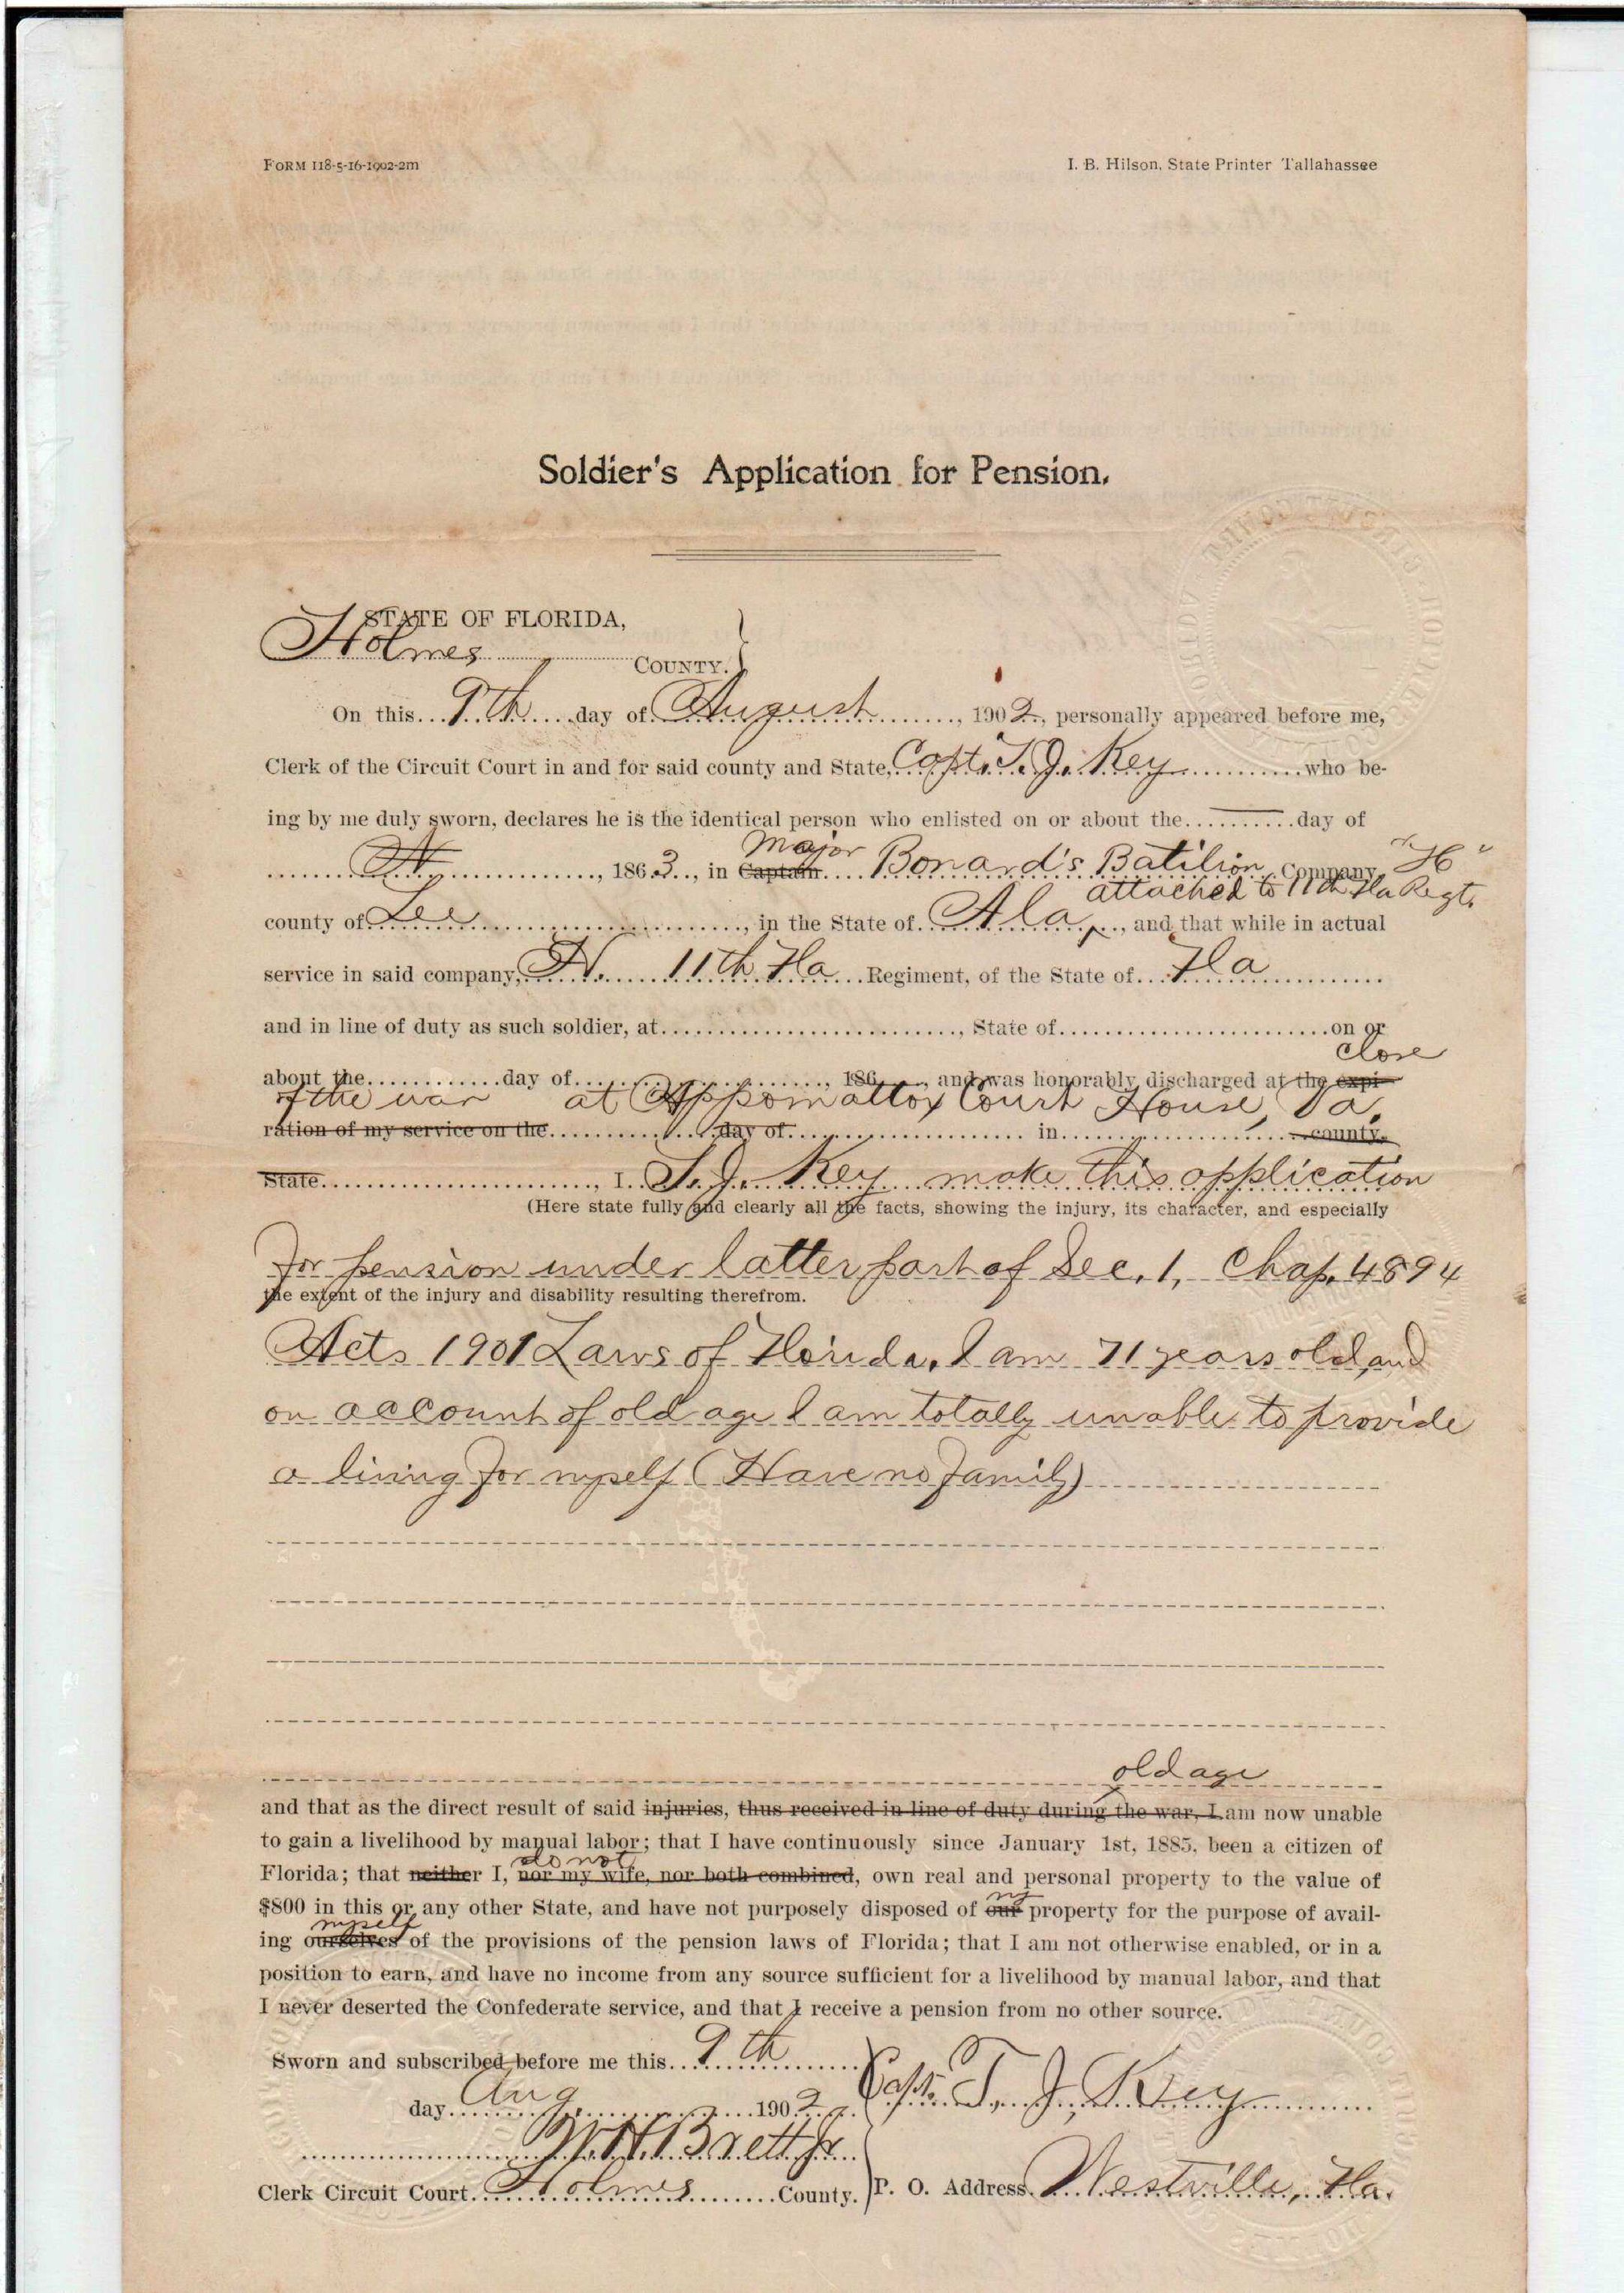 FORM 118-5-16-1902-2m
I. B. Hilson, State Printer Tallahassee
Soldier's Application for Pension.
STATE OF FLORIDA,
Holmes COUNTY.
On this 9th day of August, 1902, personally appeared before me,
Clerk of the Circuit Court in and for said county and State, Capt. T. J. Key who be-
ing by me duly sworn, declares he is the identical person who enlisted on or about the day of
Major
186 3, in Captain Bonard's Batilion, Company "H"
attached to 11th Fla Regt.
county of Lee, in the State of Ala, and that while in actual
service in said company, H. 11th Fla Regiment, of the State of Fla
and in line of duty as such soldier, at, State of on or
close
about the day of, 186, and was honorably discharged at the expi-
of the war at Appomattox Court House, Va.
ration of my service on the day of in county,
State, I T. J. Key make this application
(Here state fully and clearly all the facts, showing the injury, its character, and especially
for pension under latter part of Sec. 1, Chap. 4894
the extent of the injury and disability resulting therefrom.
Acts 1901 Laws of Florida. I am 71 years old, and
on account of old age I am totally unable to provide
a living for myself (Have no family)
old age
and that as the direct result of said injuries, thus received in line of duty during the war, I am now unable
to gain a livelihood by manual labor; that I have continuously since January 1st, 1885, been a citizen of
do not
Florida; that neither I, nor my wife, nor both combined, own real and personal property to the value of
my
$800 in this or any other State, and have not purposely disposed of our property for the purpose of avail-
myself
ing ourselves of the provisions of the pension laws of Florida; that I am not otherwise enabled, or in a
position to earn, and have no income from any source sufficient for a livelihood by manual labor, and that
I never deserted the Confederate service, and that I receive a pension from no other source.
Sworn and subscribed before me this 9th
day Aug 1902
Capt. T. J. Key
W. H. Brett Jr.
Clerk Circuit Court Holmes County.
P. O. Address Westville, Fla.